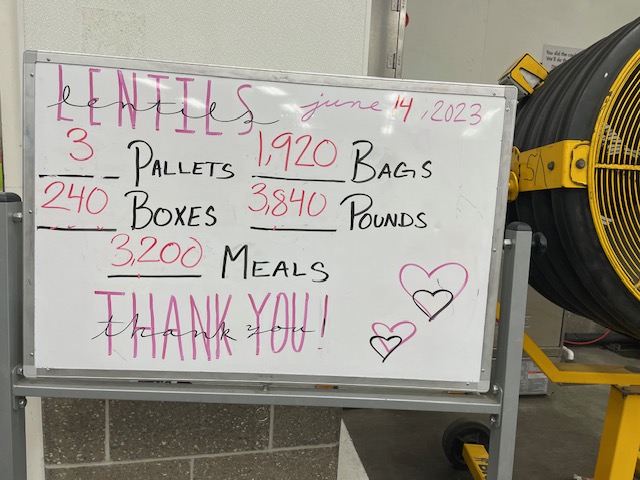 LENTILS lentils june 14, 2023
3 PALLETS 1,920 BAGS
240 BOXES 3,840 POUNDS
3,200 MEALS
THANK YOU! thank you!